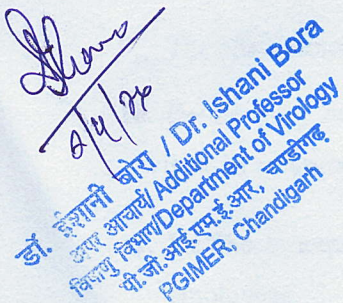 2/4/26
डॉ. ईशानी बोरा / Dr. Ishani Bora
अपर आचार्य/ Additional Professor
विषाणु विभाग/Department of Virology
पी.जी.आई.एम.ई.आर, चण्डीगढ़
PGIMER, Chandigarh